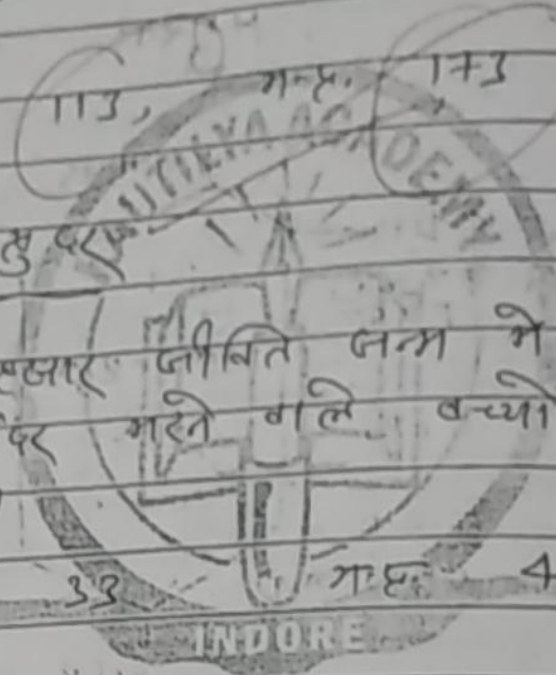 113, म.प्र. 173
KAUTILYA ACADEMY
मृत्यु दर
हजार जीवित जन्म मे
अंदर मरने वाले बच्चो
33 म.प्र. 4
INDORE